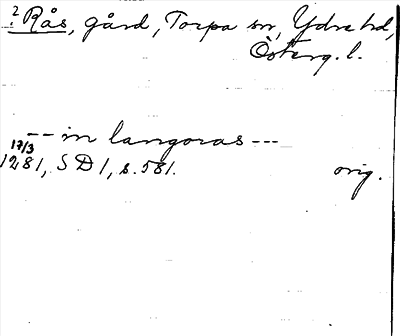 ? Rås, gård, Torpa sn, Ydre hd,
Österg. l.
-- in langoras ---
17/3
1281, SD 1, s. 581. orig.